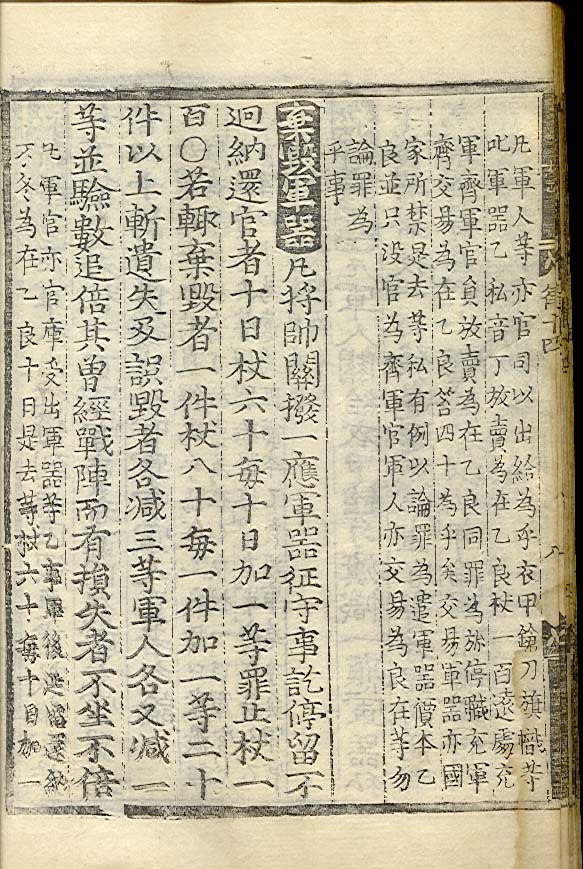 凡軍人等亦官司以出給為乎衣甲鎗刀旗幟等
叱軍器乙私音丁放賣為在乙良杖一百遠處充
軍齊軍官負放賣為在乙良同罪為旀停職充軍
齊交易為在乙良笞四十為乎矣交易軍器亦國
家所禁是去等私有例以論罪為遣軍器價本乙
良並只没官為齊軍官軍人亦交易為良在等勿
論罪為
乎事
棄毀軍器凡將帥關撥一應軍器征守事訖停留不
迴納還官者十日杖六十每十日加一等罪止杖一
百○若輒棄毀者一件杖八十每一件加一等二十
件以上斬遺失及誤毀者各減三等軍人各又減一
等並驗數追倍其曾經戰陣而有損失者不坐不倍
凡軍官亦官庫受出軍器等乙事畢後遲留還納
不冬為在乙良十日是去等杖六十每十日加一